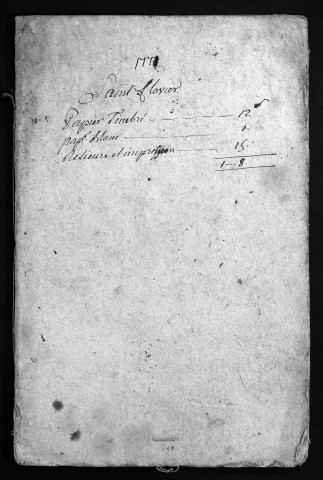 Saint flovier
Papier Timbré 12 s
pap.r blanc 1
Relieure et impression 15
1-8